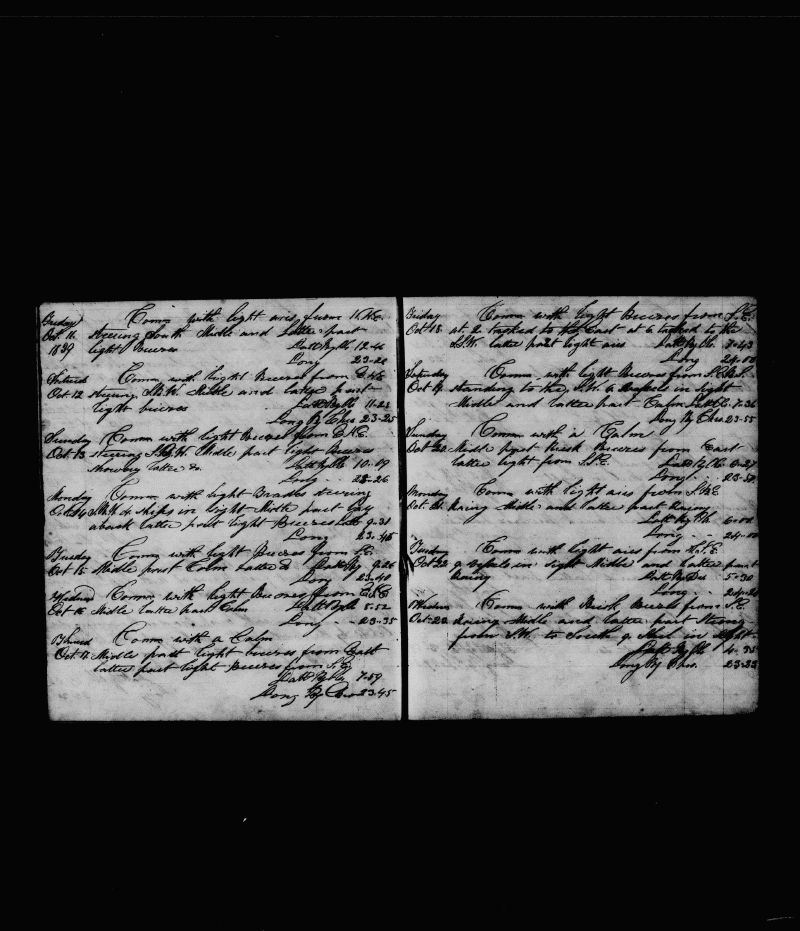 Friday Comm with light airs from N.N.E.
Oct. 11 steering South Midle and Latter part
1839 light Breezes Latt By Ob 12-40
Long 23-20
Comm with light Breezes from
Oct 12 steering S.S.W. Midle and latter part
light breezes Latt By Ob 11-21
Long By Chro 23-25
Sunday Comm with light Breezes from E.N.E.
Oct 13 steering S.S.W. Midle part light Breezes
latter Do Latt By Ob 10-19
Long - 23-26
Monday Comm with light steering
Oct 14 4 Ships in sight Midle part
latter part light Breezes Latt 9-31
Long 23-45
Tuesday Comm with light Breezes from S.E.
Oct 15 Midle part Calm latter Do Latt By 9-26
Long 23-40
Comm with light Breezes from
Oct 16 Midle latter part Calm Latt By Ob 8-52
Long - - 23-35
Comm with a Calm
Oct 17 Midle part light breezes from East
latter part light Breezes from S.E.
Latt By Ob 7-59
Long By Chro 23-45
Friday Comm with light Breezes from S.E.
Oct 18 at 2 tacked to the East at 6 tacked to the
S.W. latter part light airs Latt By Ob 7-43
Long 24-00
Saturday Comm with light Breezes from
Oct 19 standing to the S.W. 6 Vessels in sight
Midle and latter part Calm Latt Ob 7-36
Long By Chro 23-55
Sunday Comm with a Calm
Oct 20 Midle part fresh Breezes from East
latter light from S.E. Latt By Ob 6-27
Long - 23-50
Monday Comm with light airs from
Oct 21 Raing Midle and latter part
Latt By Ob 6-00
Long - - 24-00
Tuesday Comm with light airs from
Oct 22 9 Vessels in sight Midle and latter part
Raing Latt By 5-30
Long - 24-20
Comm with Fresh Breezes from S.E.
Oct 23 Raing Midle and latter part Strong
from S.W. to South 9 Sail in sight
Latt By Ob 4-35
Long By Chro. 23-23